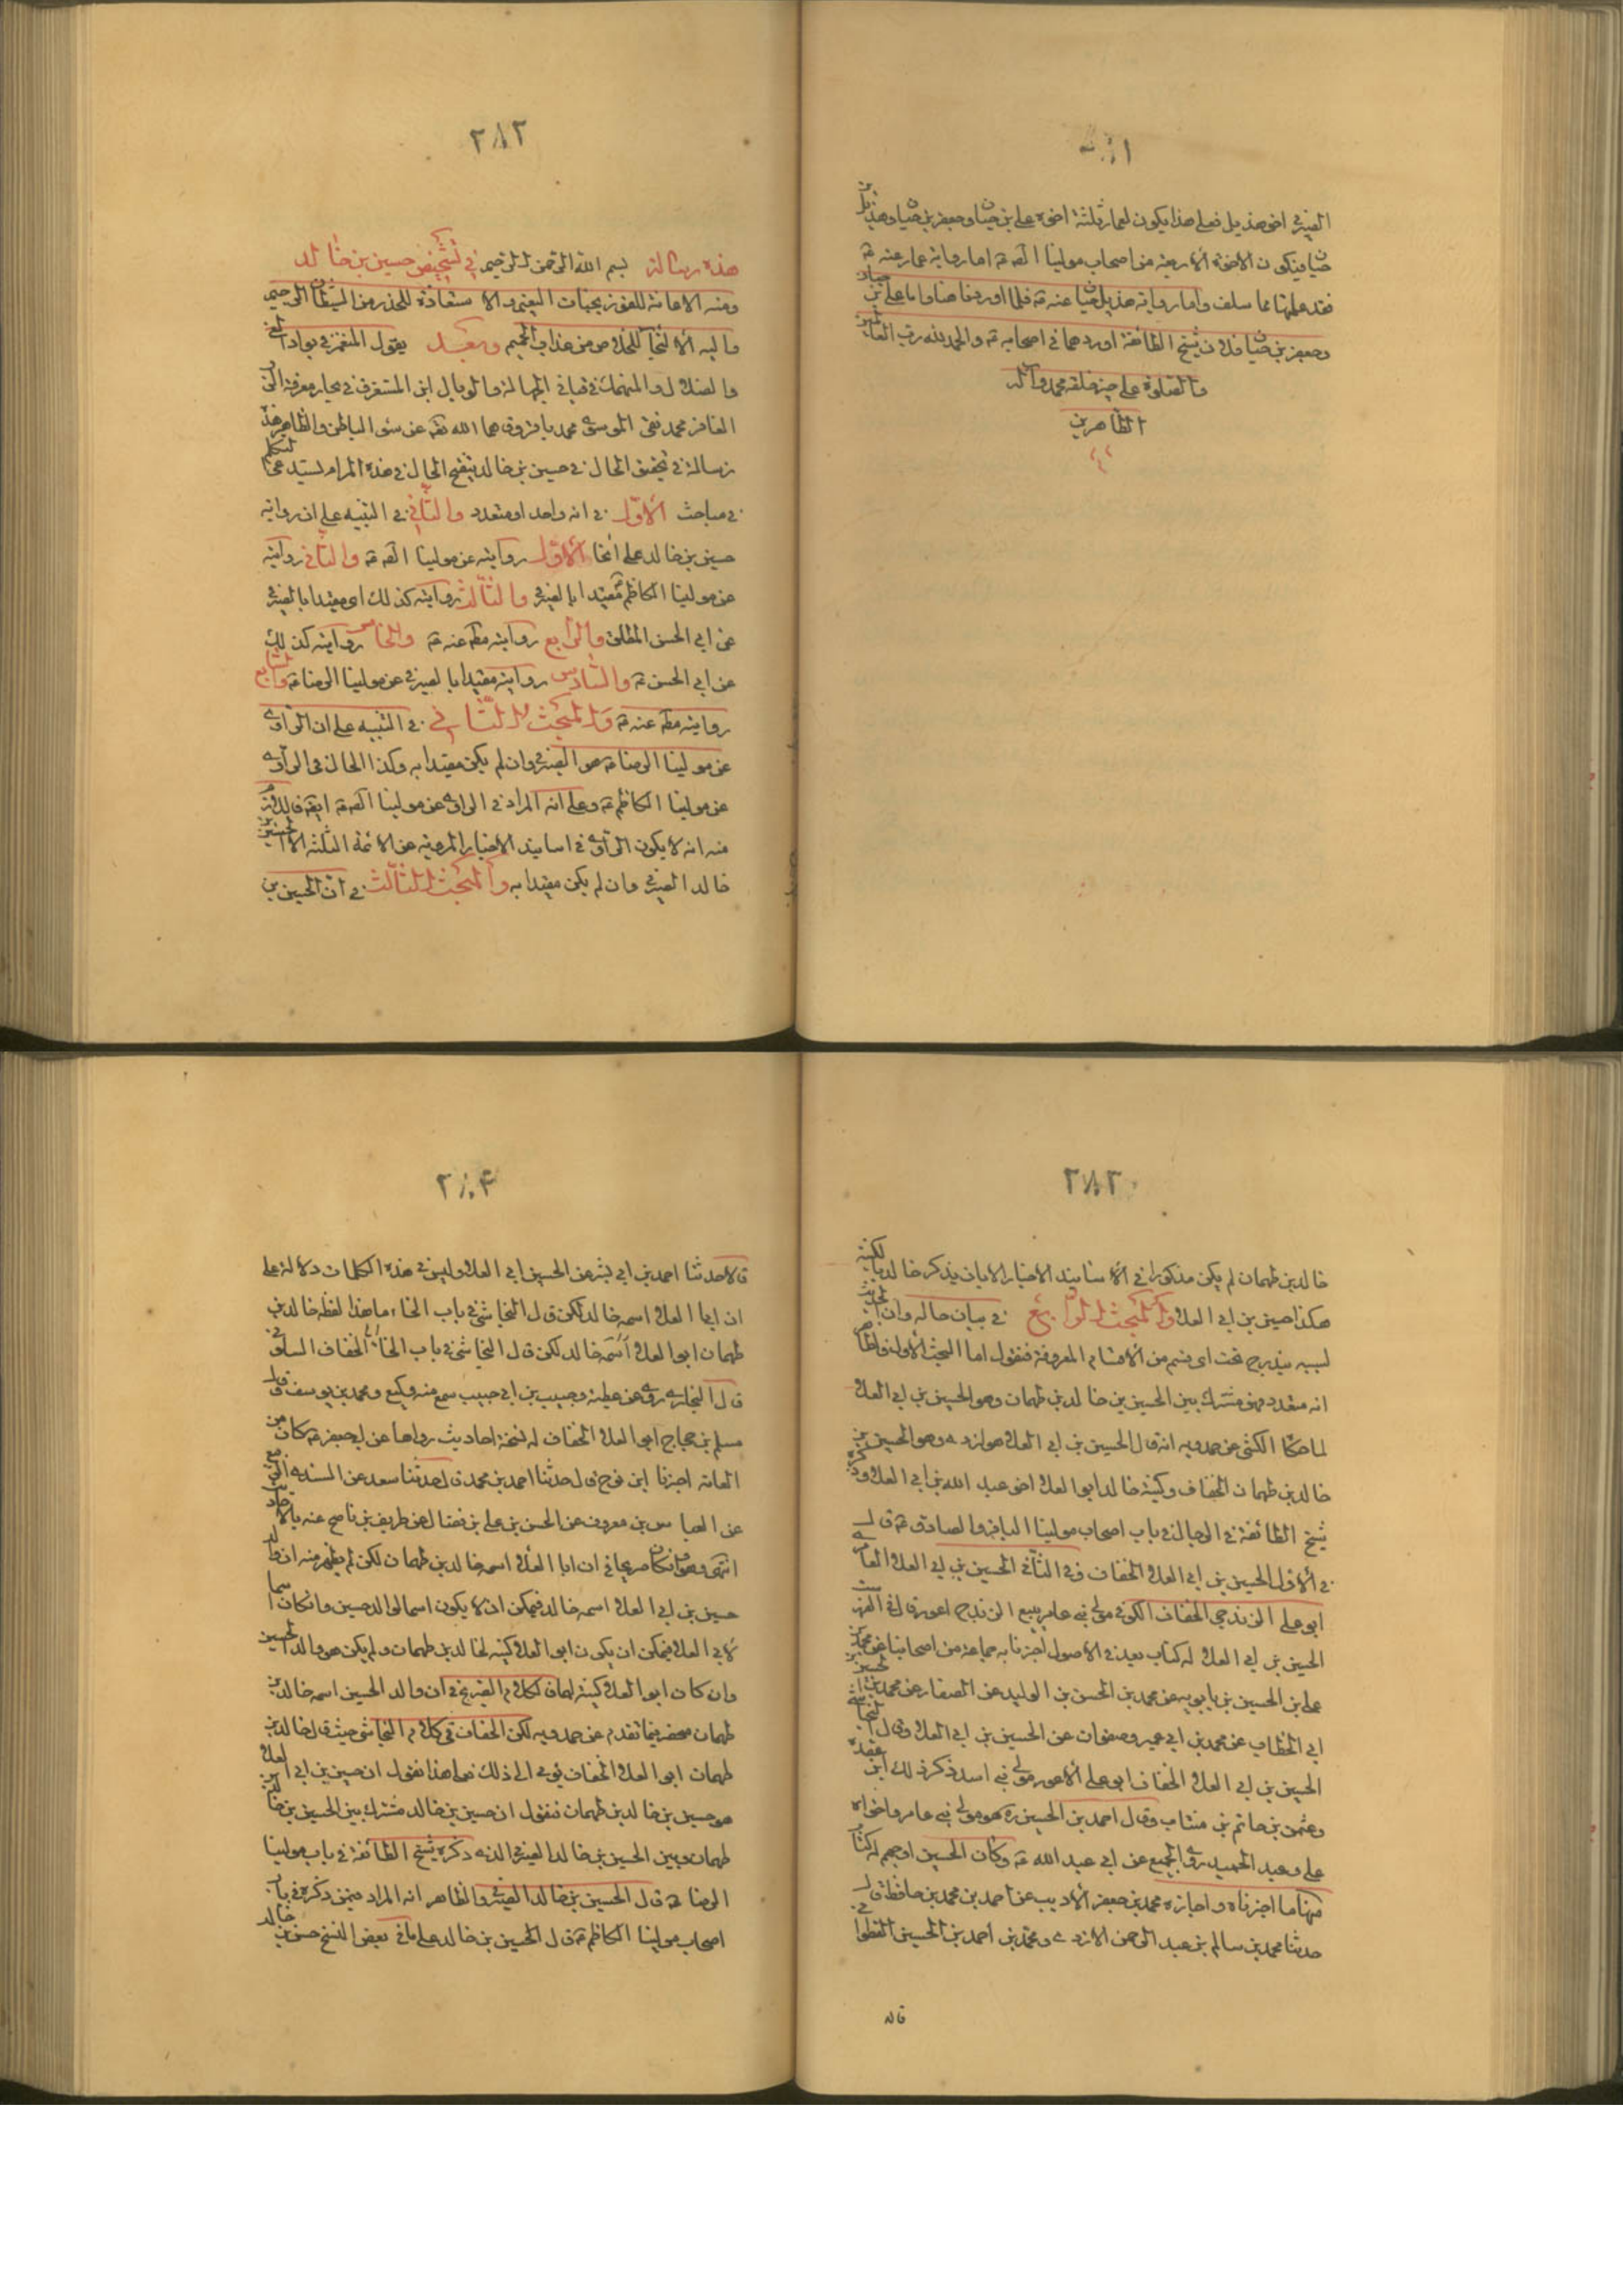 ٢٨١
الصيرفي اخو هذيل فعلى هذا يكون لعمار ثلثة اخوة علي بن حيان وجعفر بن حيان وهذيل بن
حيان فيكون الاخوة الأربعة من اصحاب مولينا الصّ ع اما رواية عمار عنه ع
فقد علمتها مما سلف واما رواية هذيل بن حيان عنه ع فلما اوردنا هنا واما علي بن حيان
وجعفر بن حيان فلان شيخ الطائفة اوردهما في اصحابه ع والحمد لله رب العالمين
والصلوة على خير خلقه محمد وآله
الطاهرين
٢٨٢
هذه رسالة بسم الله الرحمن الرحيم في تحقيق حسين بن خالد
ومنه الاعانة للفوز بجنات النعيم والاستعاذة للحذر من الشيطان الرجيم
واليه الالتجاء للخلاص من عذاب الجحيم وبعد يقول المنغمز في بوادي الغي
والضلال والمنهمك في فيافي الجهالة والوبال ابن المستغرق في بحار معرفة الربّ
الغافر محمد نقي الموسوي محمد باقر وقاهما الله تعالى عن سوء الباطن والظاهر هذه
رسالة في تحقيق الحال في حسين بن خالد تنقيح الحال في هذا المرام يستدعي التكلم
في مباحث الأول في انه واحد او متعدد والثاني في التنبيه على ان رواية
حسين بن خالد على انحاء الأول روايته عن مولينا الصّ ع والثاني روايته
عن مولينا الكاظم ع مقيدا بالصيرفي والثالث روايته كذلك اي مقيدا بالصيرفي
عن ابي الحسن المطلق والرابع روايته مط عنه ع والخامس روايته كذلك
عن ابي الحسن ع والسادس روايته مقيدا بالصيرفي عن مولينا الرضا ع والسابع
روايته مط عنه ع والمبحث الثاني في التنبيه على ان الراوي
عن مولينا الرضا ع هو الصيرفي وان لم يكن مقيدا به وكذا الحال في الراوي
عن مولينا الكاظم ع وعلى انه المراد في الراوي عن مولينا الصّ ع ايضا فاللازم
منه انه لا يكون الراوي في اسانيد الاخبار المروية عن الائمة الثلثة الا الحسين بن
خالد الصيرفي وان لم يكن مقيدا به والمبحث الثالث في ان الحسين بن
٢٨٣
خالد بن طهمان لم يكن مذكورا في الأسانيد الاخبار الا بان يذكر خالد بالكنية
هكذا حسين بن ابي العلاء والمبحث الرابع في بيان حاله وان الحديث
لسببه يندرج تحت اي قسم من الأقسام المعروفة فنقول اما البحث الأول فالظاهر
انه متعدد فهو مشترك بين الحسين بن خالد بن طهمان وهو الحسين بن ابي العلاء
لما حكاه الكشي عن حمدويه انه قال الحسين بن ابي العلاء هو ازدي وهو الحسين بن
خالد بن طهمان الخفاف وكنية خالد ابو العلاء اخو عبد الله بن ابي العلاء وذكره
شيخ الطائفة في الرجال في باب اصحاب مولينا الباقر والصادق ع قال
في الأول الحسين بن ابي العلاء الخفاف وفي الثاني الحسين بن ابي العلاء العامري
ابو علي الزندجي الخفاف الكوفي مولى بني عامر يبيع الزندج اعور قال في الفهرست
الحسين بن ابي العلاء له كتاب يعد في الأصول اخبرنا به جماعة من اصحابنا عن محمد بن
علي بن الحسين بن بابويه عن محمد بن الحسن بن الوليد عن الصفار عن محمد بن الحسين بن
ابي الخطاب عن محمد بن ابي عمير وصفوان عن الحسين بن ابي العلاء وقال النجاشي
الحسين بن ابي العلاء الخفاف ابو علي الأعور مولى بني اسد ذكر ذلك ابن عقدة
وعثمن بن حاتم بن منتاب وقال احمد بن الحسين ره هو مولى بني عامر واخواه
علي وعبد الحميد روى الجميع عن ابي عبد الله ع وكان الحسين اوجههم له كتب
منها ما اجزناه واجازه محمد بن جعفر الأديب عن احمد بن محمد بن حافظ قال
حدثنا محمد بن سالم بن عبد الرحمن الازدي ومحمد بن احمد بن الحسين القطواني
قالا
٢٨٤
قالا حدثنا احمد بن ابي بشر عن الحسين ابي العلاء وليس في هذه الكلمات دلالة على
ان ابا العلاء اسمه خالد لكن قال النجاشي في باب الخاء ما هذا لفظه خالد بن
طهمان ابو العلاء اسمه خالد لكن قال النجاشي في باب الخاء الخفاف السلولي
قال البخاري روى عن عطية وحبيب بن ابي حبيب سمع منه وكيع ومحمد بن يوسف وقال
مسلم بن حجاج ابو العلاء الخفاف له نسخة احاديث رواها عن ابي جعفر ع كان من
العامة اخبرنا ابن نوح قال حدثنا احمد بن محمد قال حدثنا سعد عن السندي الربيع
عن العباس بن معروف عن الحسن بن علي بن فضال عن طريف بن ناصح عنه بالاحاديث
انتهى وهو وان كان صريحا في ان ابا العلاء اسمه خالد بن طهمان لكن لم يظهر منه ان والد
حسين بن ابي العلاء اسمه خالد فيمكن ان لا يكون اسما لوالد حسين وان كان اسما
لابي العلاء فيمكن ان يكون ابو العلاء كنية لخالد بن طهمان ولم يكن هو والد الحسين
وان كان ابو العلاء كنية لهما فالكلام الصريح في ان والد الحسين اسمه خالد بن
طهمان منحصر فيما تقدم عن حمدويه لكن الخفاف في كلام النجاشي حيث قال خالد بن
طهمان ابو العلاء الخفاف يومي الى ذلك فعلى هذا نقول ان حسين بن ابي العلاء
هو حسين بن خالد بن طهمان فنقول ان حسين بن خالد مشترك بين الحسين بن خالد بن
طهمان وبين الحسين بن خالد الصيرفي الذي ذكره شيخ الطائفة في باب مولينا
الرضا ع قال الحسين بن خالد الصيرفي والظاهر انه المراد فيمن ذكره في باب
اصحاب مولينا الكاظم ع قال الحسين بن خالد على ما في بعض النسخ حسن بن خالد